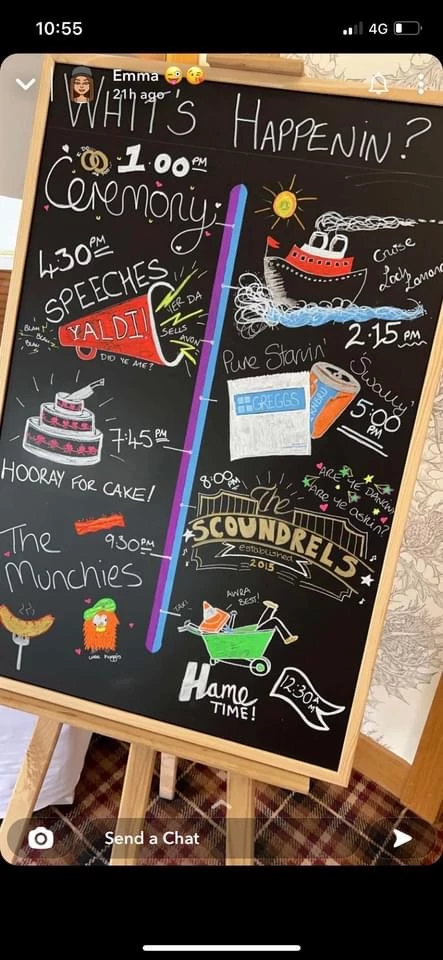 10:55
4G
Emma
21h ago
WHIT'S HAPPENIN?
1.00PM
Ceremony
Cruise
Loch
2:15PM
4:30PM
SPEECHES
YALDI!
YER DA
SELLS
AVON
BLAH!
BLAH
BLAH
DID YE AYE?
Pure Starvin'
Swally
GREGGS
5:00
PM
7:45PM
HOORAY FOR CAKE!
8:00PM
ARE YE DANCIN?
ARE YE ASKIN?
The
SCOUNDRELS
established
2015
9:30PM
The
Munchies
TAXI
AWRA
BEST!
Hame
TIME!
12:30AM
Send a Chat